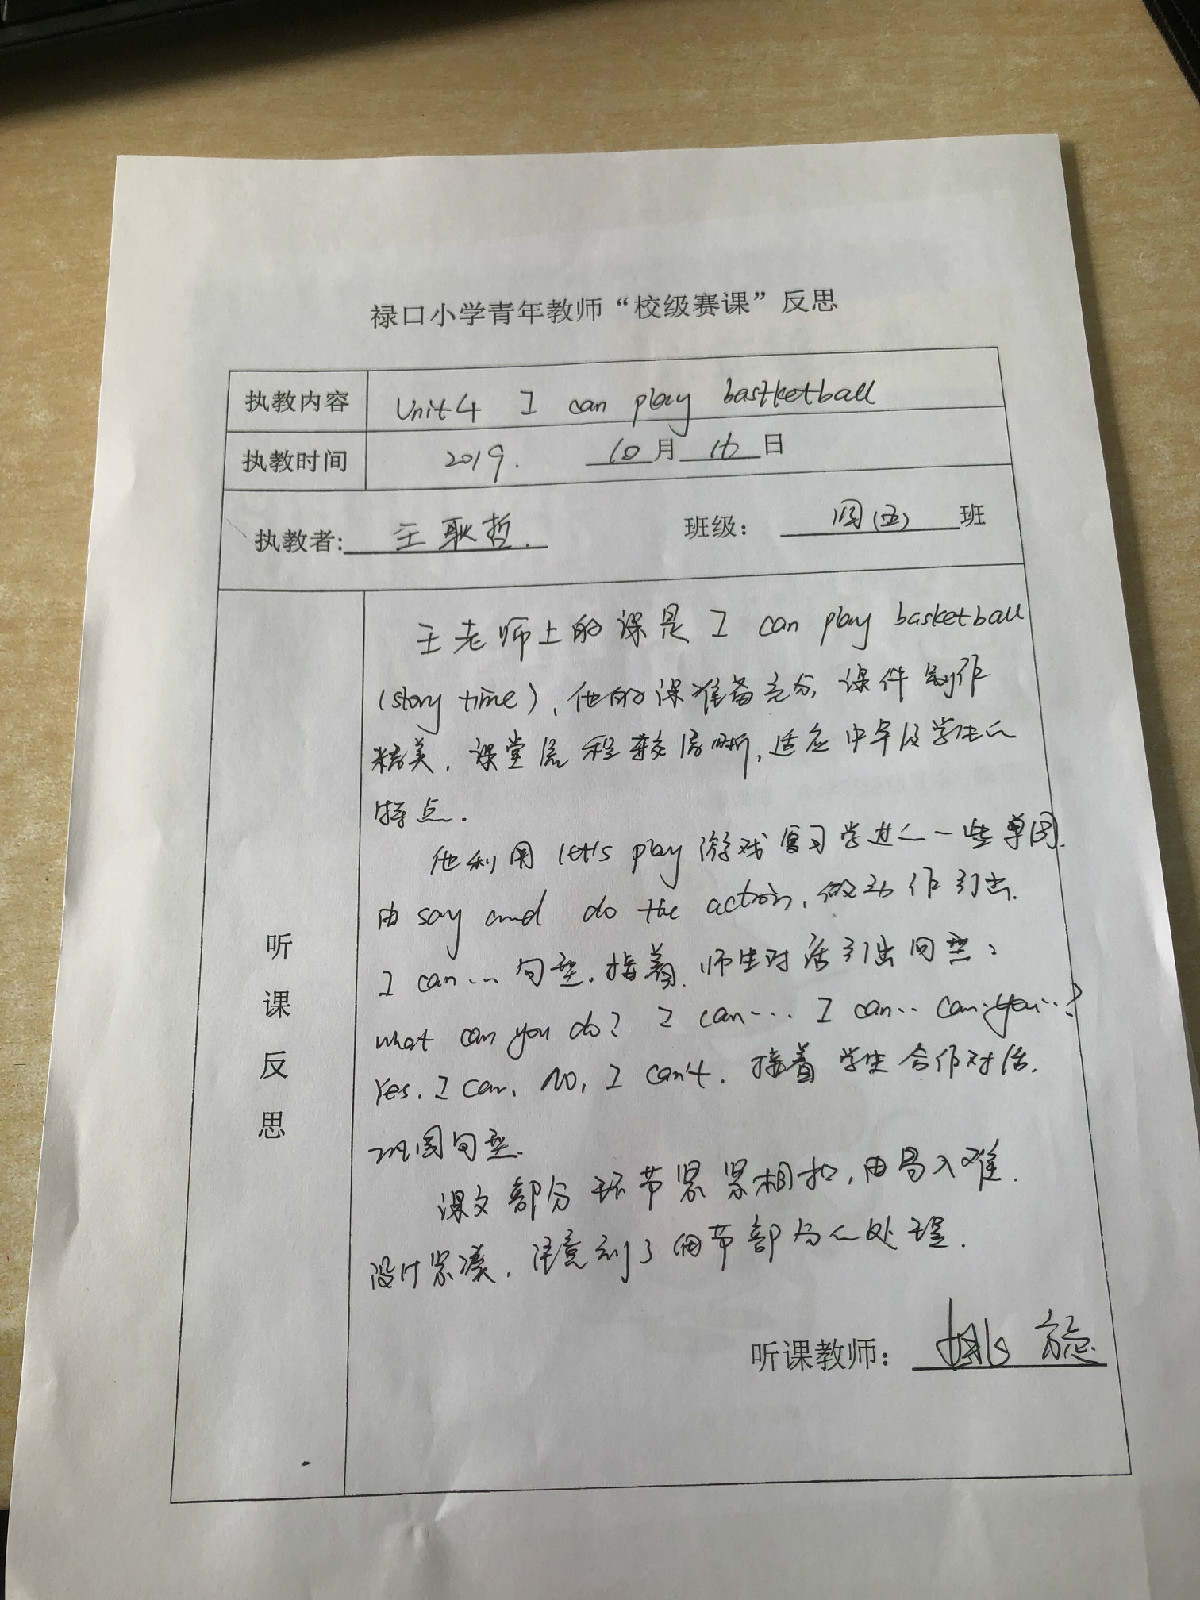 禄口小学青年教师“校级赛课”反思
执教内容 Unit4 I can play bastketball
执教时间 2019. 10月16日
执教者: 王耿哲. 班级: 四(五) 班
听课反思
王老师上的课是 I can play basketball
(story time), 他的课准备充分, 课件制作
精美, 课堂流程较清晰, 适应中年级学生的
特点.
他利用 let's play 游戏复习学过的一些单词.
由 say and do the action, 做动作引出.
I can… 句型. 接着, 师生对话引出句型:
what can you do? I can… I can… can you…?
Yes, I can, No, I can't. 接着 学生合作对话.
巩固句型.
课文部分环节紧紧相扣, 由易入难.
设计紧凑, 注意到了细节部分的处理.
听课教师: 姚